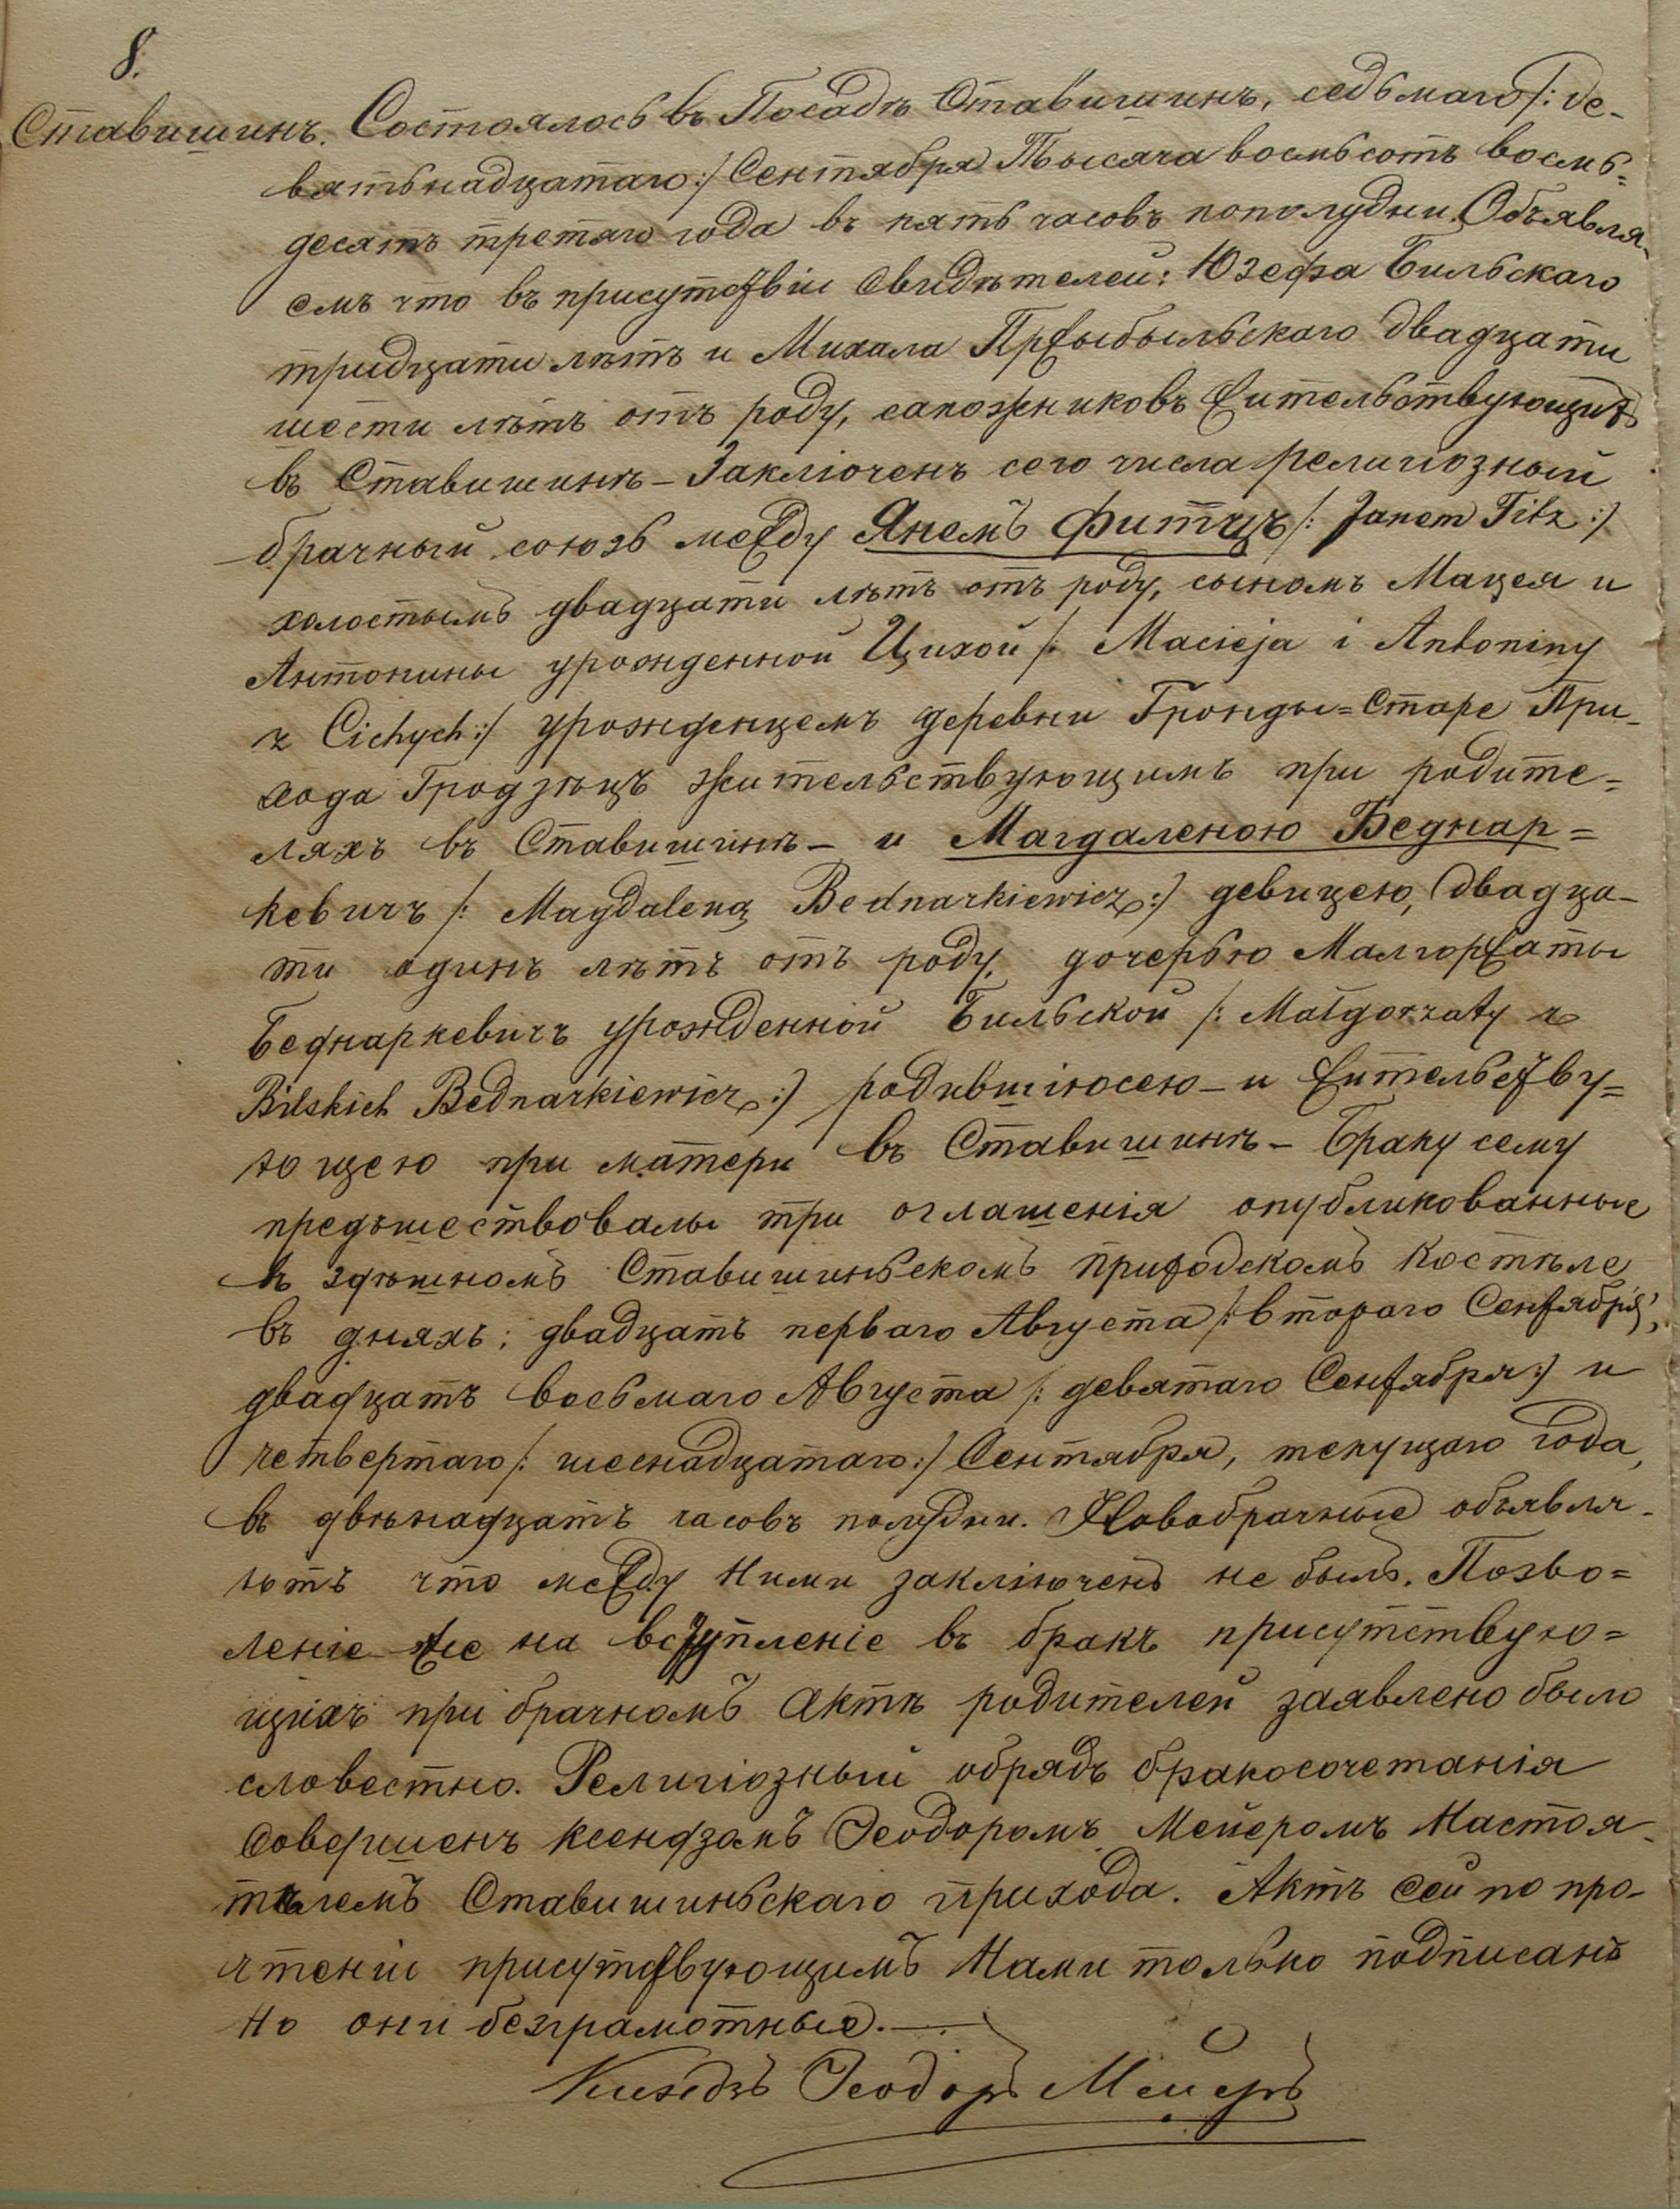 8.
Ставишинъ. Состоялось въ Посадѣ Ставишинъ, седьмаго /: де-
вятьнадцатаго :/ Сентября Тысяча восмьсотъ восмь=
десятъ третяго года въ пять часовъ пополудни. Объявля-
емъ что въ присутствіи свидѣтелей: Юзефа Бильскаго
тридцати лѣтъ и Михала Пржыбыльскаго двадцати
шести лѣтъ отъ роду, сапожниковъ жительствующихъ
въ Ставишинѣ – Заключенъ сего числа религіозный
брачный союзъ между Янемъ Фитцъ /: Janem Fitz :/
холостымъ двадцати лѣтъ отъ роду, сыномъ Мацея и
Антонины урожденной Цихой /: Macieja i Antoniny
z Cichych :/ урожденцемъ деревни Гронды=Старе При-
хода Гродзѣцъ жительствующимъ при родите=
ляхъ въ Ставишинѣ – и Магдаленою Беднар=
кевичъ /: Magdaleną Bednarkiewicz :/ девицею, двадца-
ти одинъ лѣтъ отъ роду, дочерью Малгоржаты
Беднаркевичъ урожденной Бильской /: Małgorzaty z
Bilskich Bednarkiewicz :/ родившіюсею – и жительству=
ющею при матери въ Ставишинѣ – Браку сему
предъшествовалы три оглашенія опубликованные
въ здѣшномъ Ставишиньскомъ приходскомъ костѣле
въ дняхъ: двадцатъ перваго Августа /: втораго Сентября :/,
двадцатъ восьмаго Августа /: девятаго Сентября :/ и
четвертаго /: шеснадцатаго :/ Сентября, текущаго года,
въ двѣнадцатъ часовъ полудни. Новобрачные объявля-
ютъ что между ними заключенъ не былъ. Позво=
леніе же на вступленіе въ бракъ присутствую=
щихъ при брачномъ Актѣ родителей заявлено было
словестно. Религіозный обрядъ бракосочетанія
Совершенъ ксендзомъ Ѳеодоромъ Мейеромъ Настоя-
телемъ Ставишиньскаго прихода. Актъ сей по про-
чтеніи присутствующимъ Нами только подписанъ
Но они безграмотные. —
Ксендзъ Ѳеодоръ Мейеръ